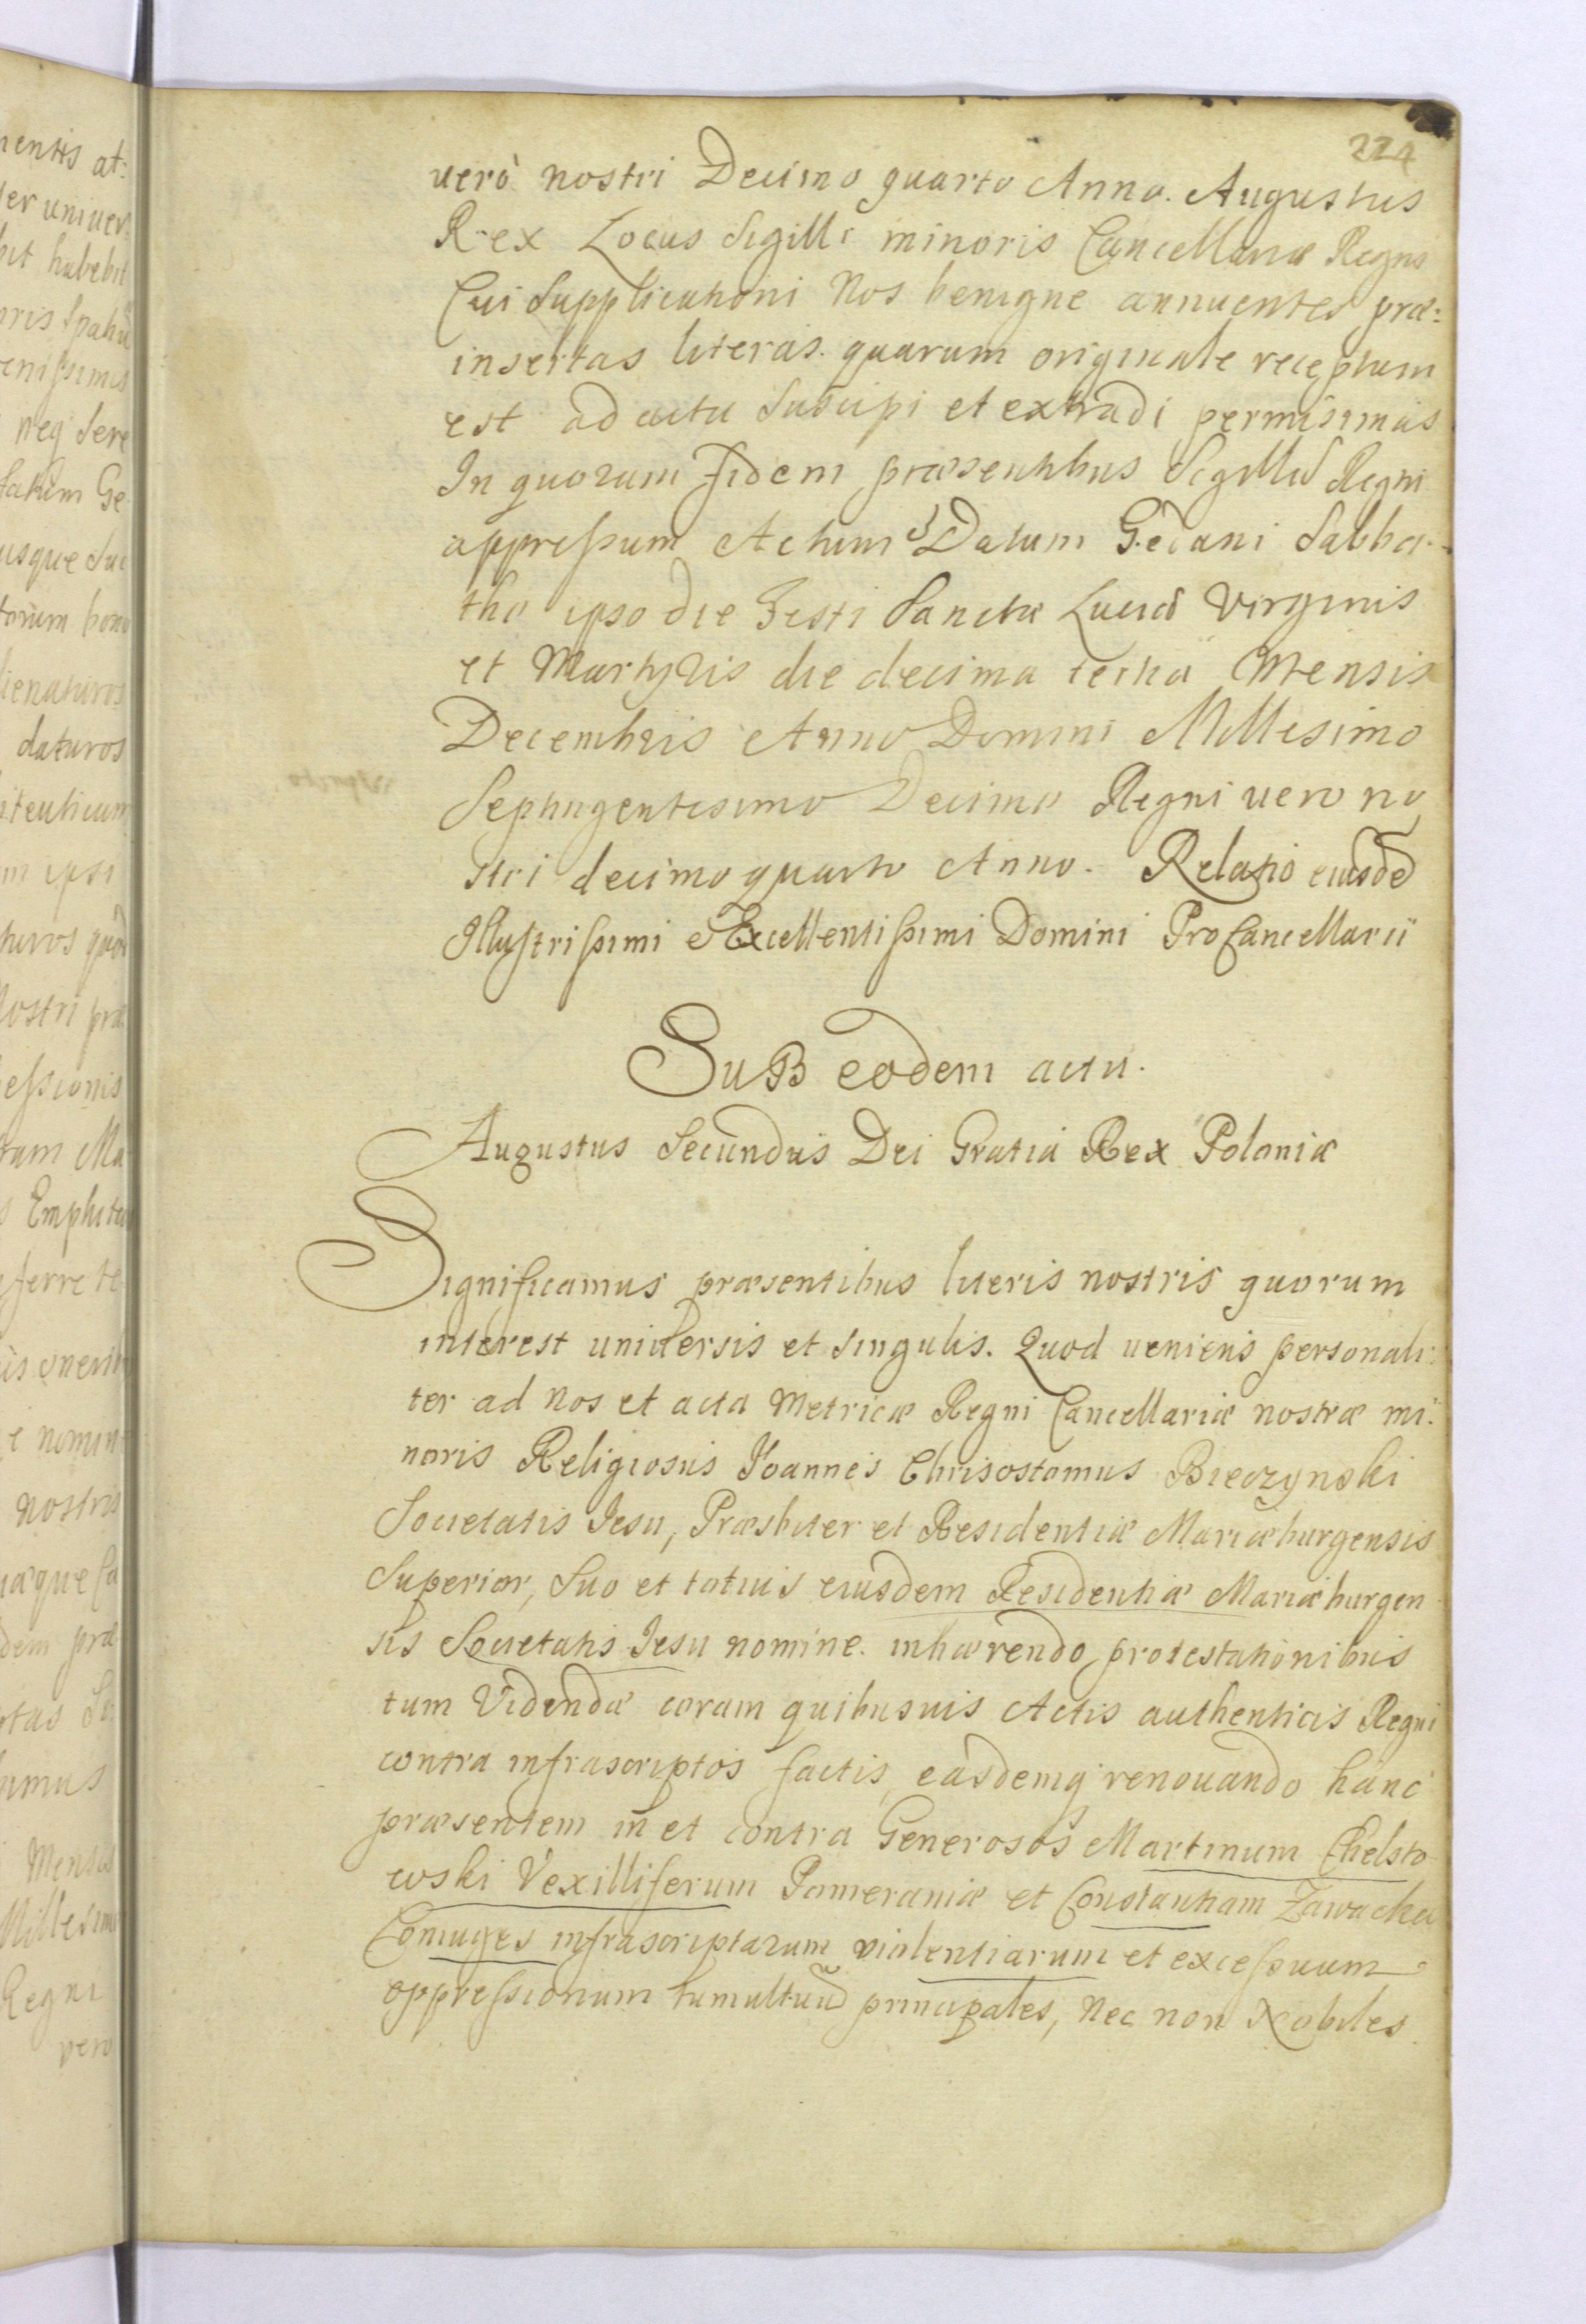 224
uerò nostri Decimo quarto Anno. Augustus
Rex Locus Sigilli minoris Cancellariæ Regni
Cui Supplicationi Nos benigne annuentes præ:
insertas literas. quarum originale receptum
est ad acta Suscipi et extradi permisimus
In quorum fidem præsentibus Sigillū Regni
appreſsum Actum & Datum Gedani Sabba-
tho ipso die Festi Sanctæ Luciæ Virginis
et Martyris die decima tertia Mensis
Decembris Anno Domini Millesimo
Septingentesimo Decimo Regni uero no
stri decimo quarto Anno. Relatio eiusdē
Illuſtriſsimi Excellentiſsimi Domini ProCancellarii
SuB eodem actu.
Augustus Secundus Dei Gratia Rex Poloniæ
Significamus præsentibus literis nostris quorum
interest uniuersis et singulis. Quod ueniens personali:
ter ad Nos et acta Metricæ Regni Cancellariæ nostræ mi:
noris Religiosus Ioannes Chrisostomus Bieczynski
Societatis Iesu, Præsbiter et Residentiæ Mariæburgensis
Superior, Suo et totius eiusdem Residentiæ Mariæburgen
sis Societatis Iesu nomine. inhærendo protestationibus
tum Videndæ coram quibusuis Actis authenticis Regni
contra infrascriptos factis, easdemq renouando hanc
præsentem in et contra Generosos Martinum Chelsto
wski Vexilliferum Pomeraniæ et Constantiam Zawacka
Coniuges infrascriptarum violentiarum et exceſsuum
oppreſsionum tumultuū principales, Nec non Nobiles
nentis at:
er uniuer:
bit habebit
oris Spatiū
eniſsimis
neq Sere
Ge
usque Suc
torum bono
lienaturos
daturos
m ipsi
turos quod
Nostri præ
eſsionis
tam Ma
Emphiteu
ferre te
e nomin
nostris
uæque Ca
dem præ
umus
Mensis
Millesimo
Regni
vero